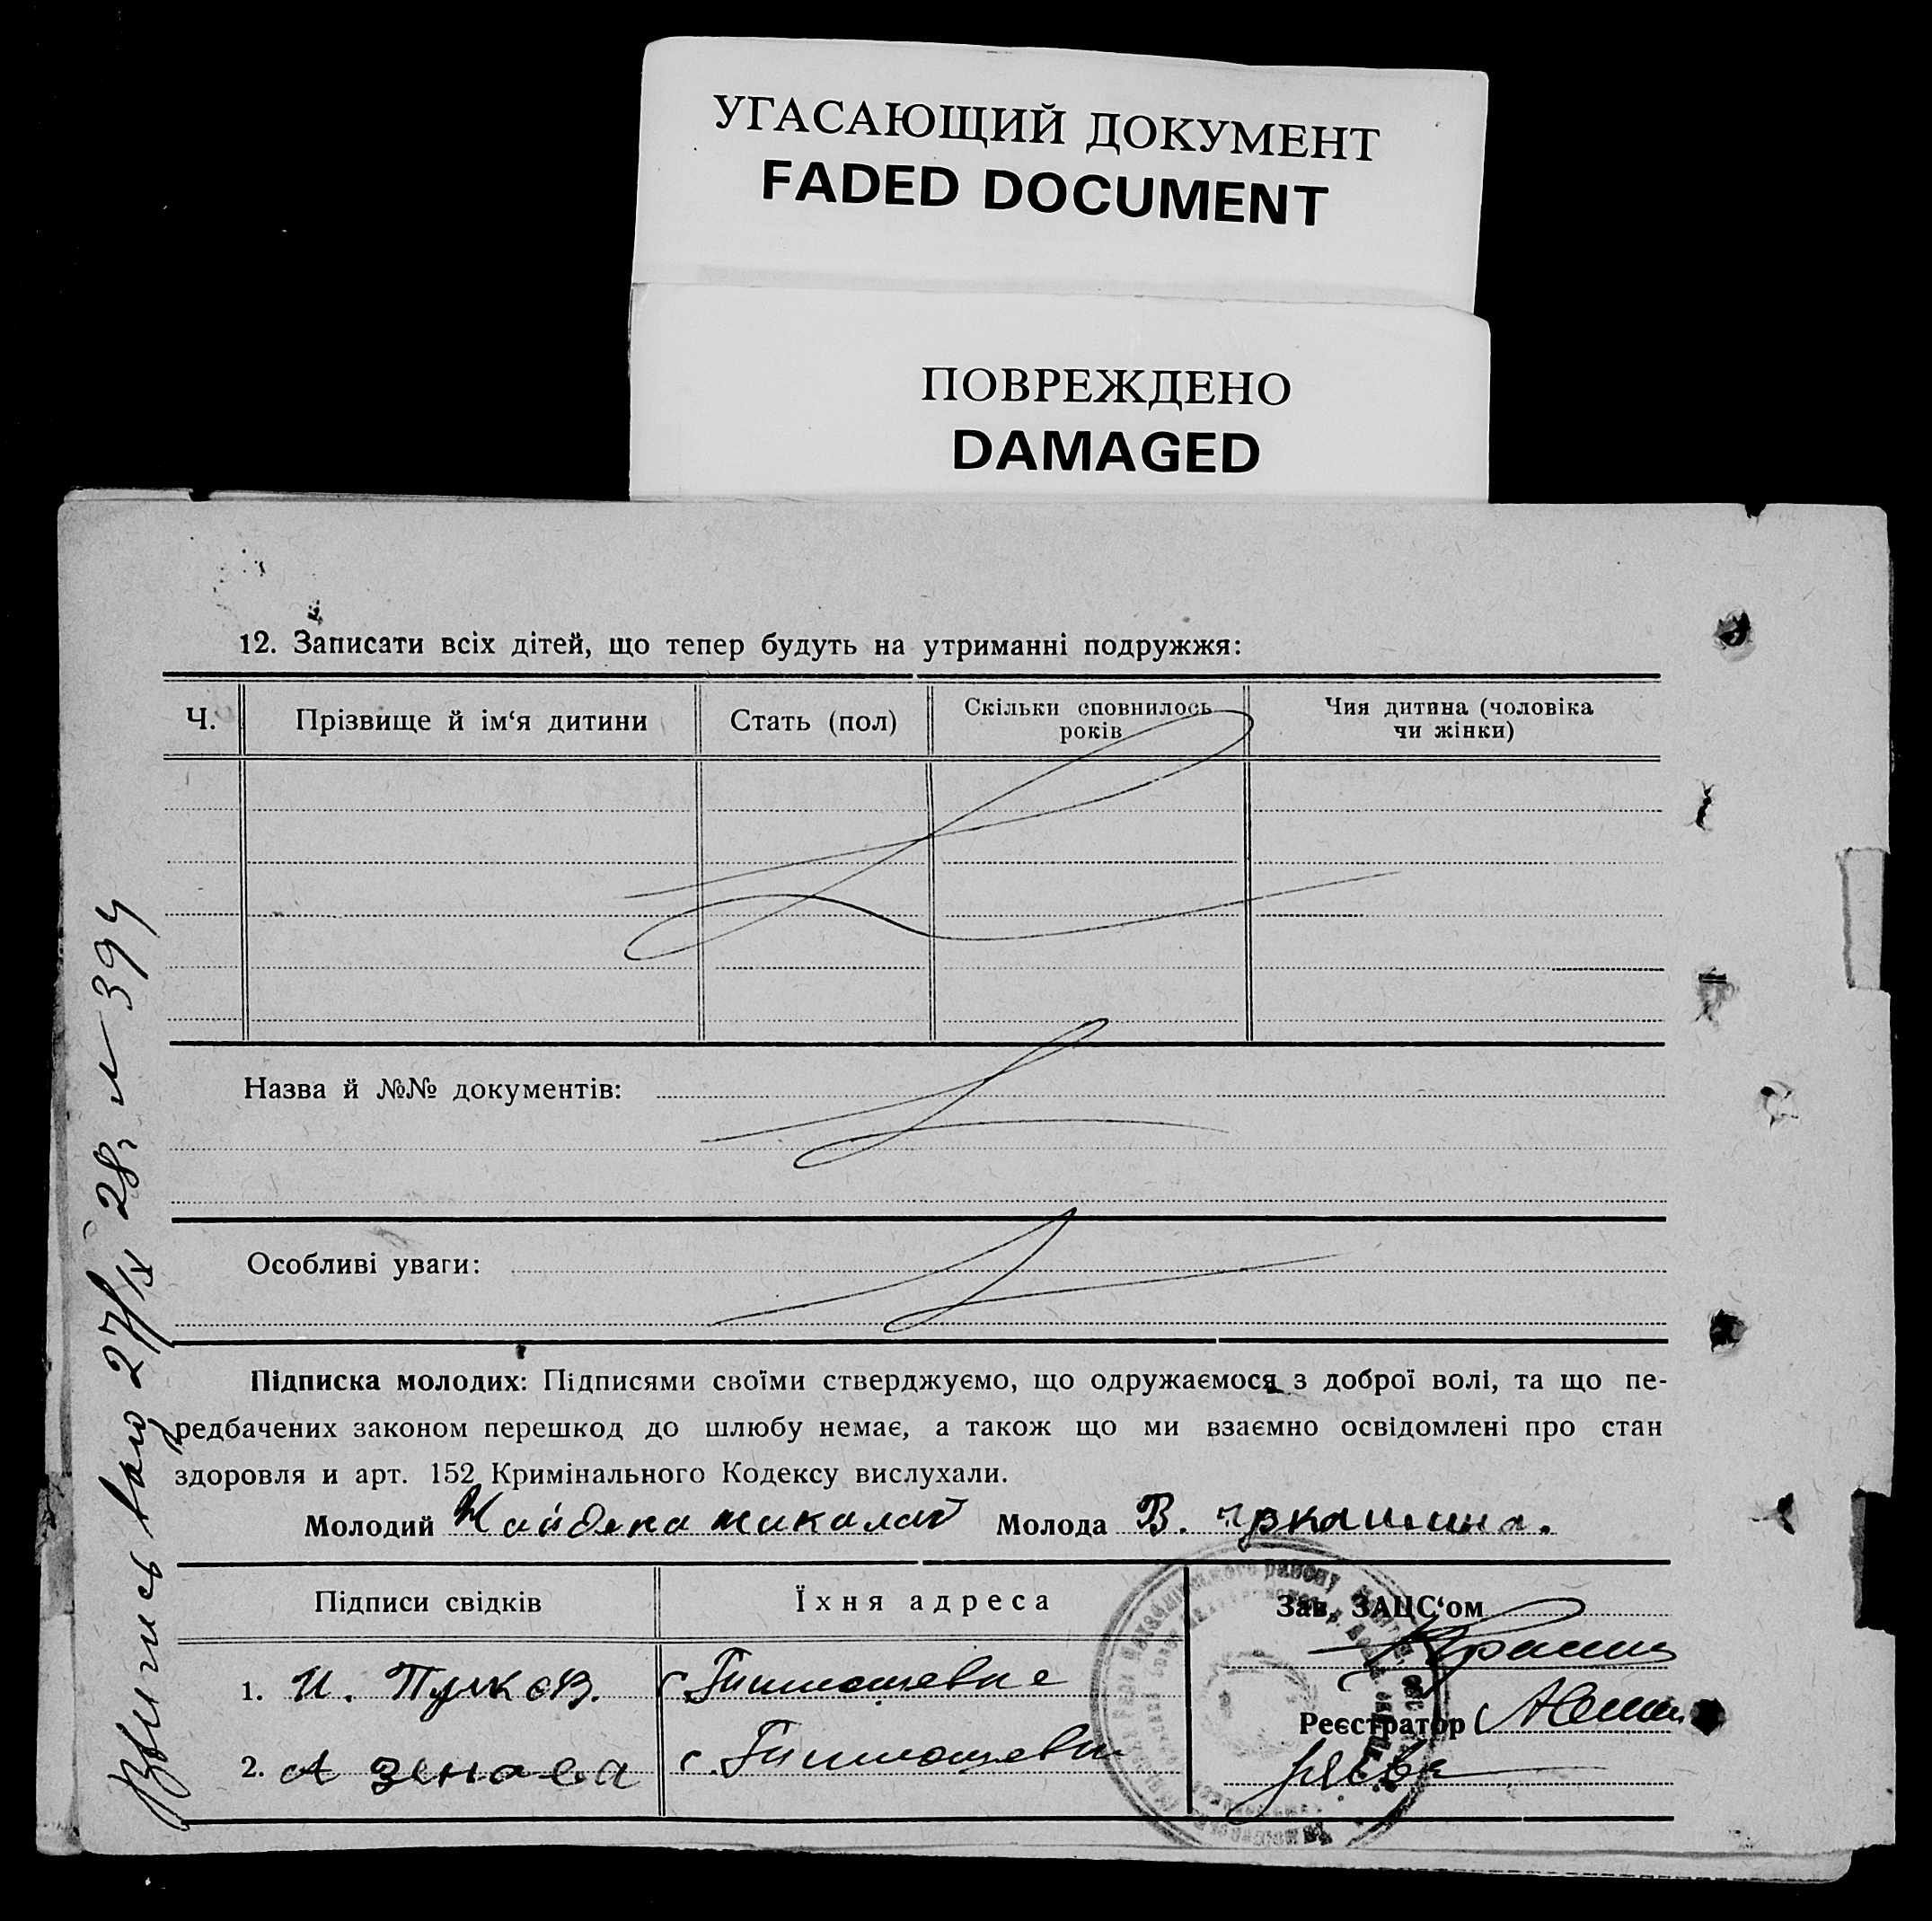 УГАСАЮЩИЙ ДОКУМЕНТ
FADED DOCUMENT
ПОВРЕЖДЕНО
DAMAGED
12. Записати всіх дітей, що тепер будуть на утриманні подружжя:
Ч. Прізвище й ім‘я дитини Стать (пол) Скільки сповнилось Чия дитина (чоловіка
років чи жінки)
Назва й №№ документів:
Особливі уваги:
Підписка молодих: Підписями своїми стверджуємо, що одружаємося з доброї волі, та що пе-
редбачених законом перешкод до шлюбу немає, а також що ми взаємно освідомлені про стан
здоровля и арт. 152 Кримінального Кодексу вислухали.
Молодий Молода В.
Підписи свідків Їхня адреса Зав. ЗАЦС‘ом
1. И.
Реєстратор
2. А
27/IX 28г 394